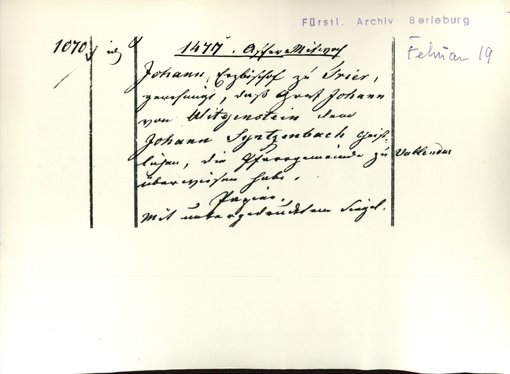 Fürstl. Archiv Berleburg
Februar 19
1070
1477. Aschermittwoch
Johann, Erzbischof zu Trier,
genehmigt, daß Graf Johann
von Witgenstein dem
Johann Syntzenbach Geist-
lichen, die Pfarrgemeinde zu Vallendar
überwiesen habe.
Papier.
Mit untergedrucktem Siegel.